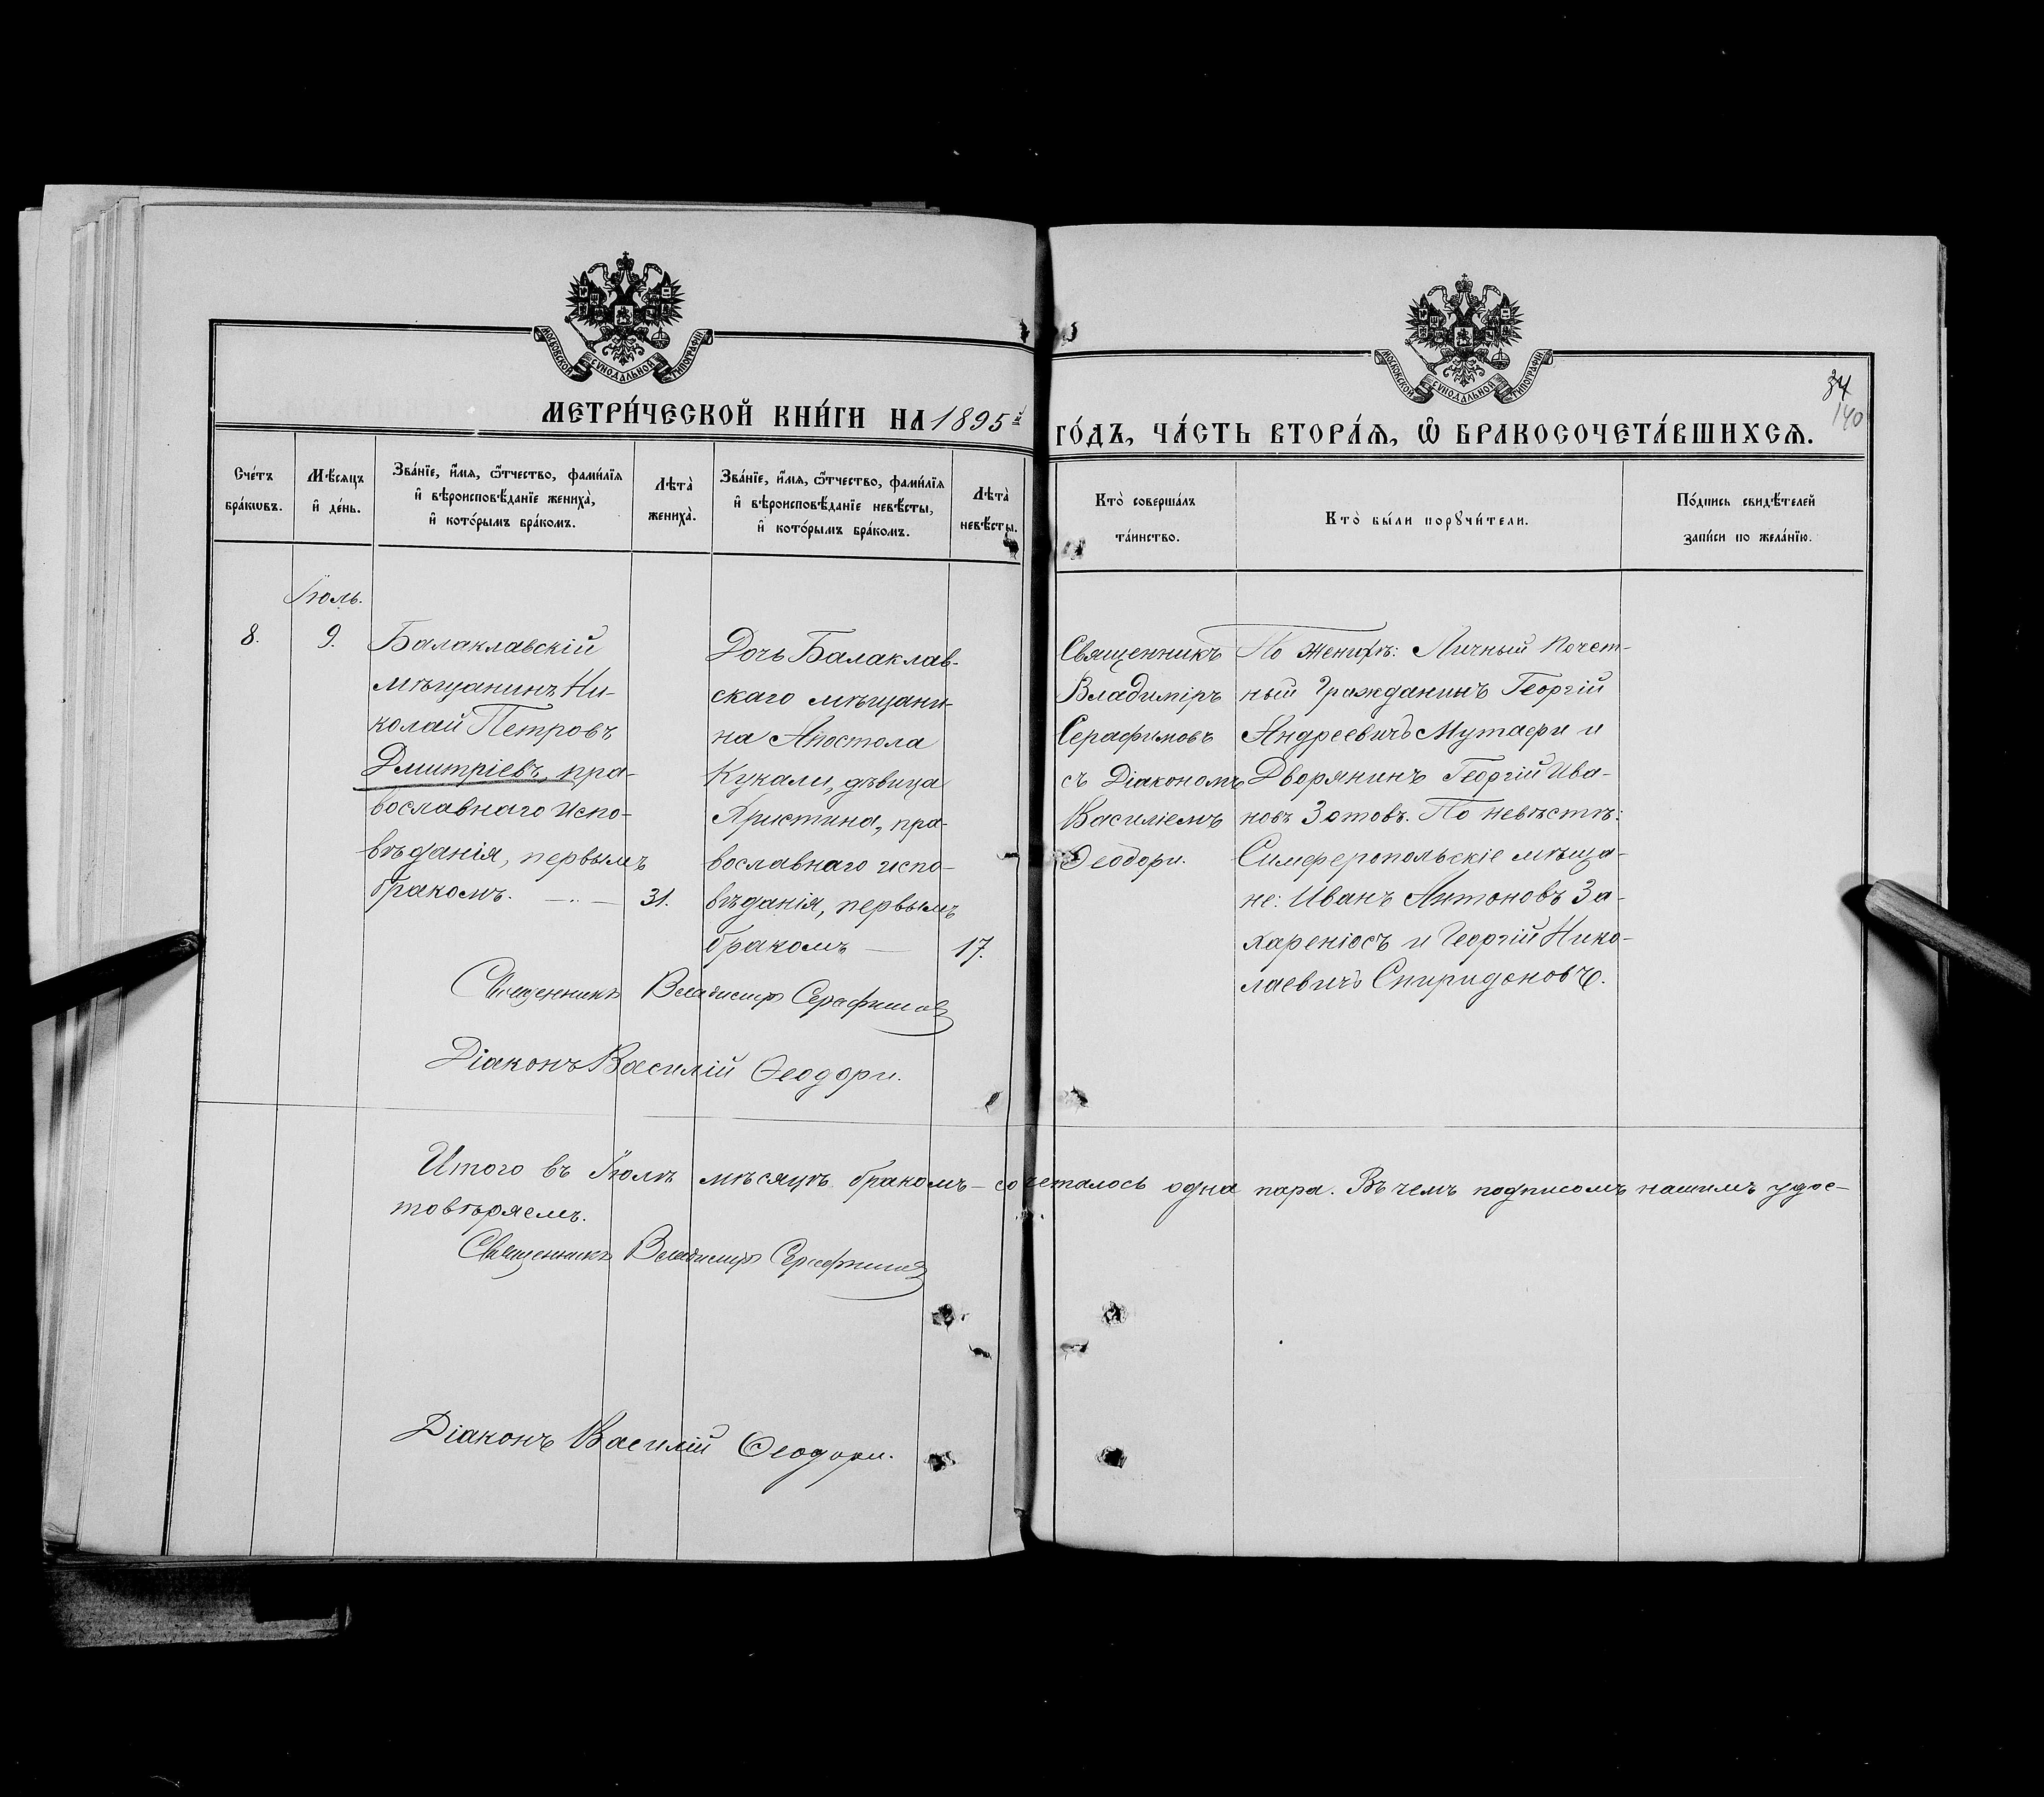 МОСКОВСКОЙ СѴНОДАЛЬНОЙ ТИПОГРАФІИ
МОСКОВСКОЙ СѴНОДАЛЬНОЙ ТИПОГРАФІИ
34
140
МЕТРИ́ЧЕСКОЙ КНИ́ГИ НА 1895й ГО́ДЪ, ЧА́СТЬ ВТОРА́Ѧ, Ѽ БРАКОСОЧЕТА́ВШИХСѦ.
Сче́тъ
бра́кѡвъ.
Мѣ́сѧцъ
и҆ де́нь.
Зва́нїе, и҆́мѧ, ѻ҆́тчество, фами́лїѧ
и҆ вѣроисповѣ́данїе жениха̀,
и҆ кото́рымъ бра́комъ.
Лѣта̀
жениха̀.
Зва́нїе, и҆́мѧ, ѻ҆́тчество, фами́лїѧ
и҆ вѣроисповѣ́данїе невѣ́сты,
и҆ кото́рымъ бра́комъ.
Лѣта̀
невѣ́сты.
Кто̀ соверша́лъ
та́инство.
Кто̀ бы́ли порꙋчи́тели.
По́дпись свидѣ́телей
за́писи по жела́нїю.
Іюль.
8.
9.
Балаклавскій
мѣщанинъ Ни-
колай Петровъ
Дмитріевъ, пра-
вославнаго испо-
вѣданія, первымъ
бракомъ.
31.
Дочь Балаклав-
скаго мѣщани-
на Апостола
Кукали, дѣвица
Христина, пра-
вославнаго испо-
вѣданія, первымъ
бракомъ
17.
Священникъ
Владиміръ
Серафимовъ
съ Діакономъ
Василіемъ
Ѳеодори.
По женихѣ: Личный Почет-
ный Гражданинъ Георгій
Андреевичъ Мутафи и
Дворянинъ Георгій Ива-
новъ Зотовъ. По невѣстѣ:
Симферопольскіе мѣща-
не: Иванъ Антоновъ За-
хареніосъ и Георгій Нико-
лаевичъ Спиридоновъ.
Священникъ Владиміръ Серафимовъ
Діаконъ Василій Ѳеодори.
Итого въ Іюлѣ мѣсяцѣ бракомъ-сочеталось одна пара. Въ чемъ подписомъ нашимъ удос-
товѣряемъ.
Священникъ Владиміръ Серафимовъ
Діаконъ Василій Ѳеодори.